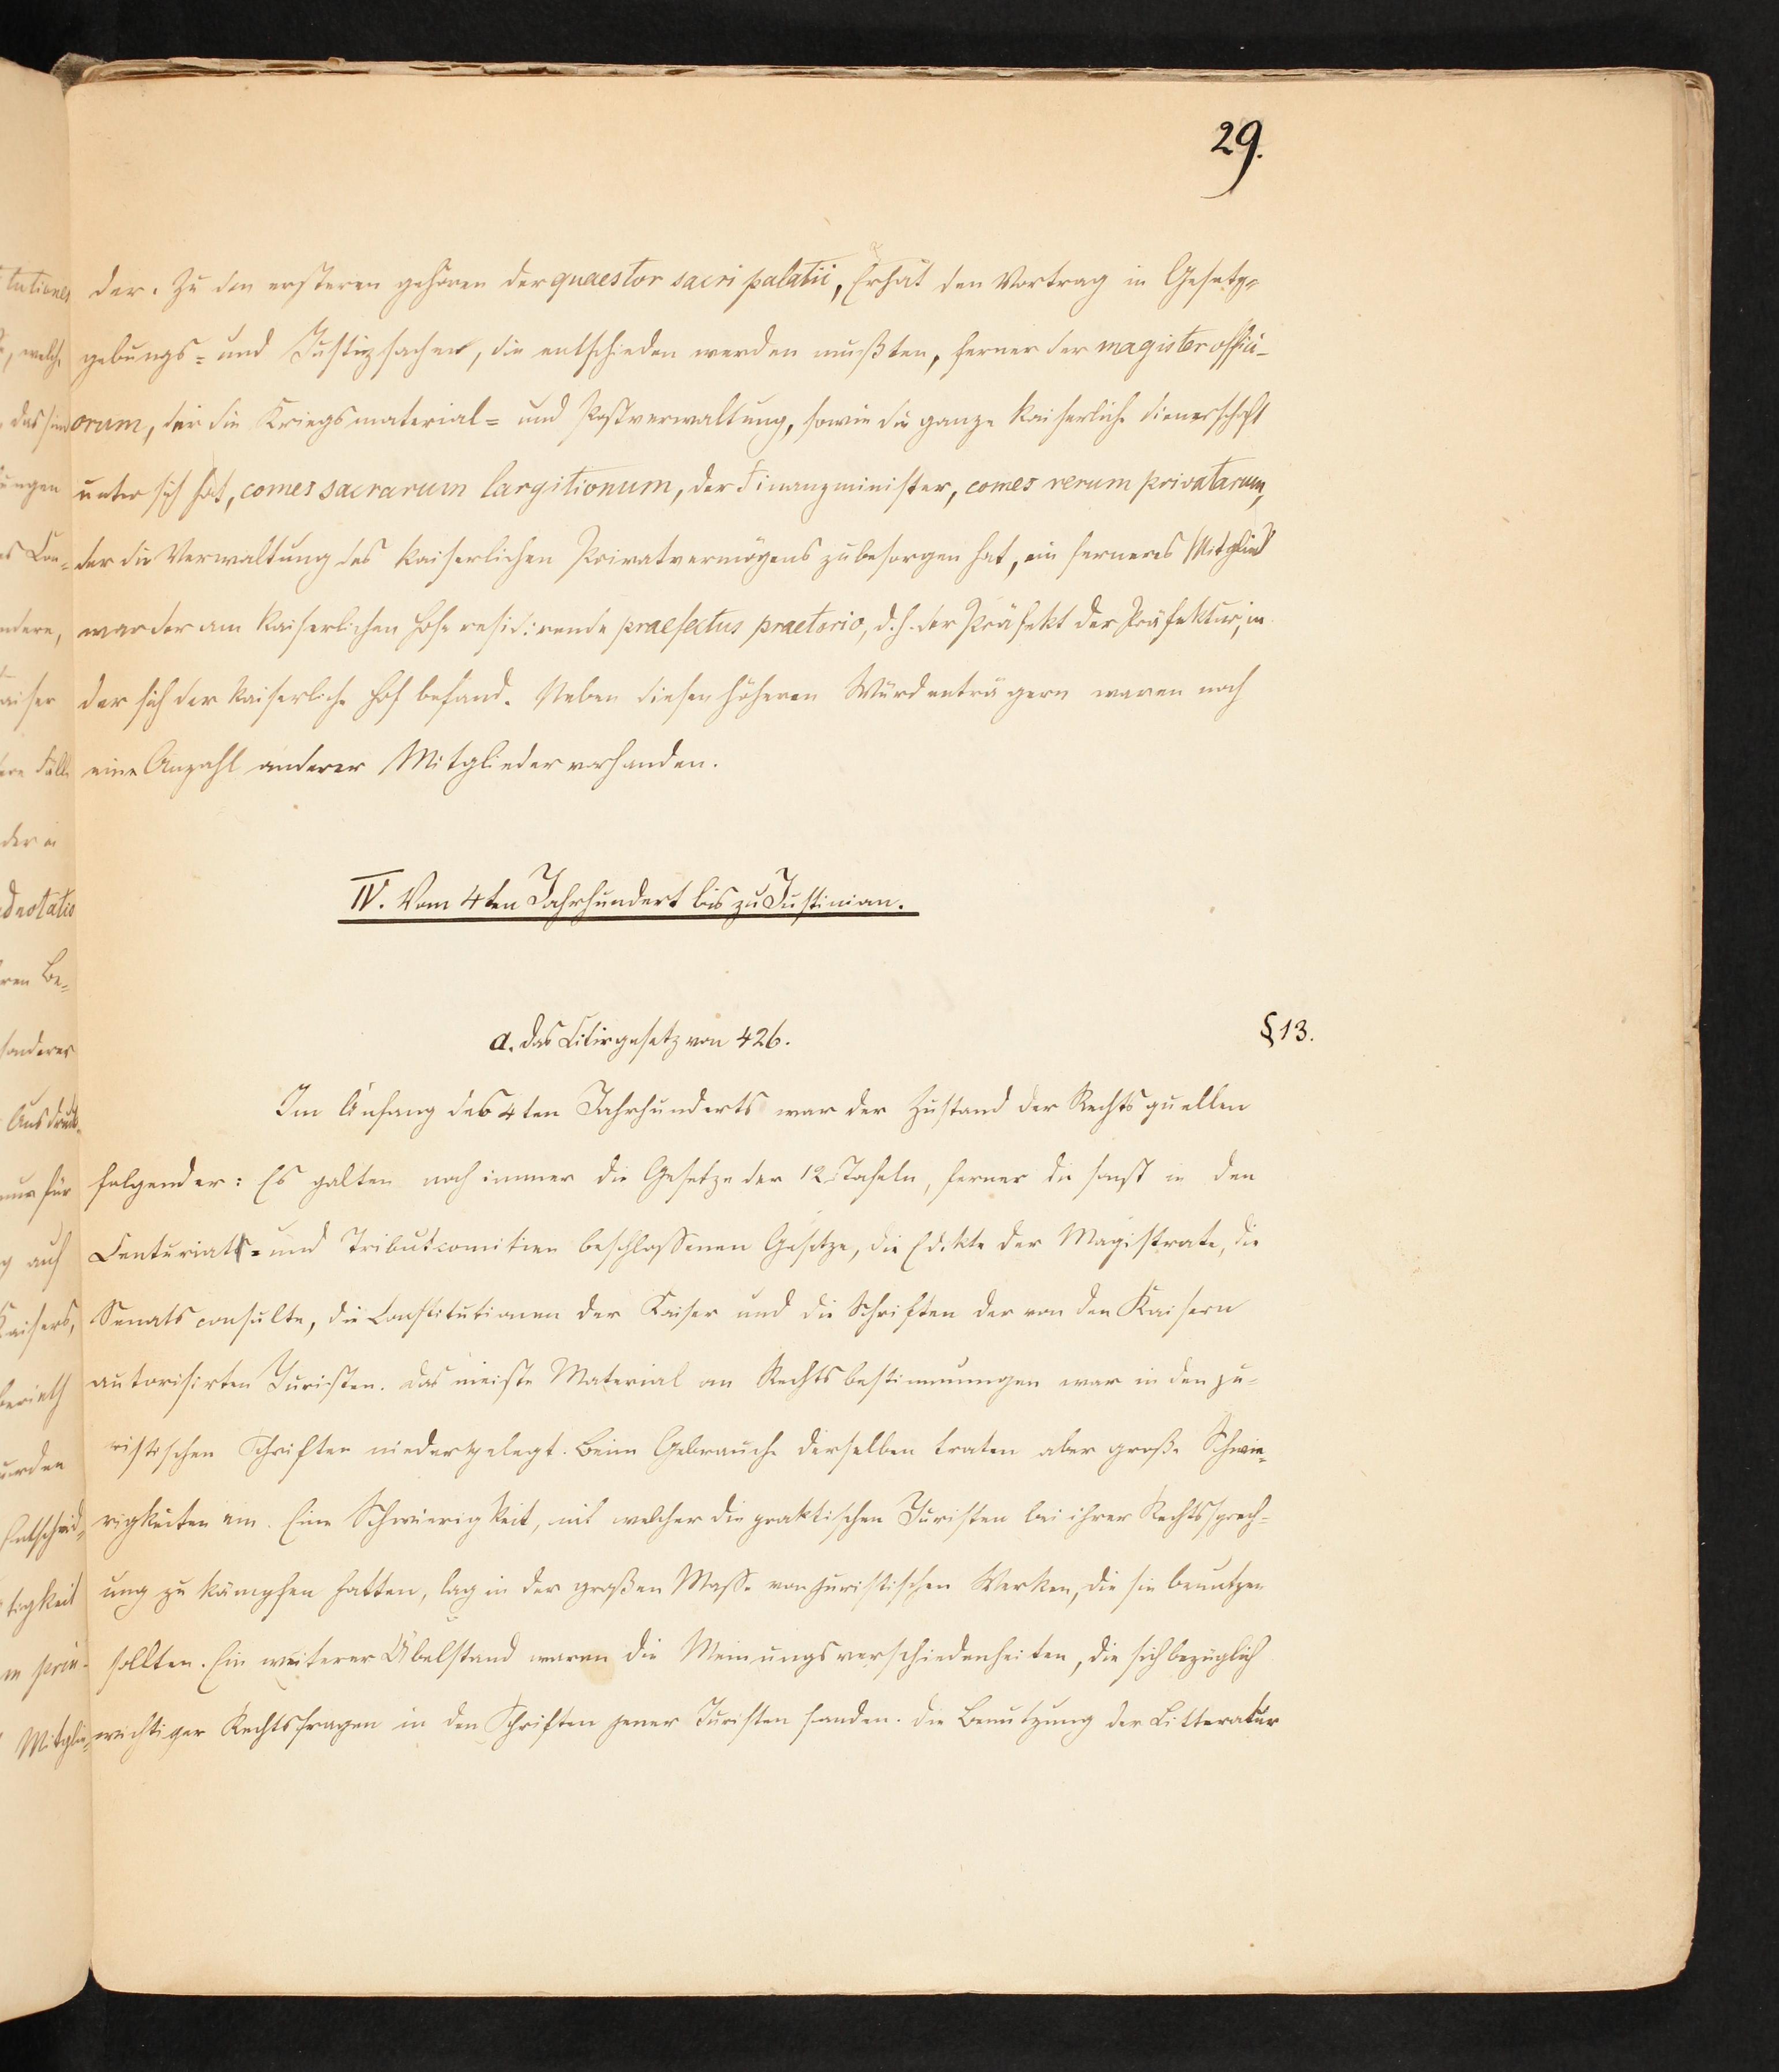 29.
der. Zu den ersteren gehören der quaestor sacri palatii, Er hat den Vortrag in Gesetz=
gebungs= und Justizsachen, die entschieden werden mußten, ferner der magister offici-
orum, der die Kriegsmaterial= und Postverwaltung, sowie die ganze kaiserliche Dienerschaft
unter sich hat, comes sacrarum largitionum, der Finanzminister, comes rerum privatarum,
der die Verwaltung des kaiserlichen Privatvermögens zu besorgen hat, ein ferneres Mitglied
war der am kaiserlichen Hofe residirende praefectus praetorio, d. h. der Präfekt der Präfektur, in
der sich der kaiserliche Hof befand. Neben diesen höheren Würdenträgern waren noch
eine Anzahl anderer Mitglieder vorhanden.
IV. Vom 4ten Jahrhundert bis zu Justinian.
a. Das Citirgesetz von 426.
§ 13.
Im Anfang des 4ten Jahrhunderts war der Zustand der Rechtsquellen
folgender: Es galten noch immer die Gesetze der 12 Tafeln, ferner die sonst in den
Centuriat= und Tributcomitien beschlossenen Gesetze, die Edikte der Magistrate, die
Senatsconsulte, die Constitutionen der Kaiser und die Schriften der von den Kaisern
autorisirten Juristen. Das meiste Material an Rechtsbestimmungen war in den ju=
ristischen Schriften niedergelegt. Beim Gebrauche derselben traten aber große Schwie=
rigkeiten ein. Eine Schwierigkeit, mit welcher die praktischen Juristen bei ihrer Rechtssprech=
ung zu kämpfen hatten, lag in der großen Masse von juristischen Werken, die sie benutzen
sollten. Ein weiterer Übelstand waren die Meinungsverschiedenheiten, die sich bezüglich
wichtiger Rechtsfragen in den Schriften jener Juristen fanden. Die Benutzung der Litteratur